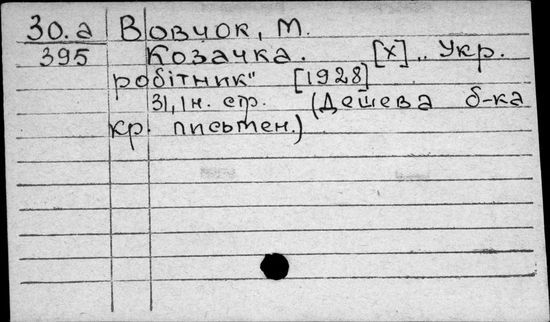 30.а Вовчок, М.
395 Козачка. [Х] „Укр.
робітник" [1928]
31, 1 н. стр. (Дешева б-ка
кр. письмен.)